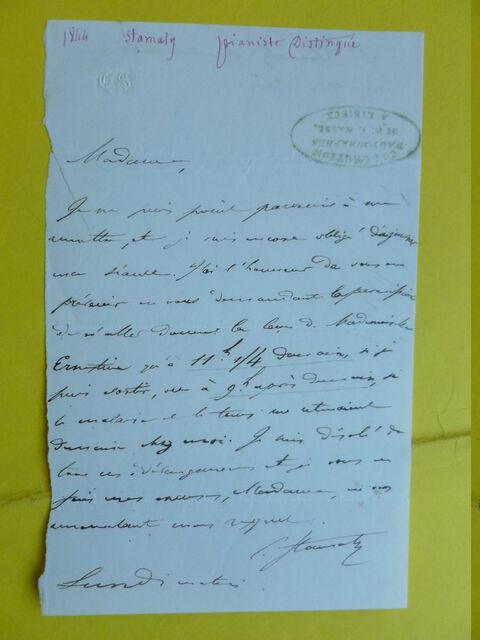 1844 Stamaty pianiste Distingué
CS
COLLECTION
D'AUTOGRAPHES
A LISIEUX
Madame,
Je ne puis point parvenir à me
remettre, et je suis encore obligé d'ajourner
ma séance. J'ai l'honneur de vous en
prévenir en vous demandant la permission
de n'aller donner la leçon de Mademoiselle
Ernestine qu'à 11h 1/4 demain, si je
puis sortir, ou à 9h après demain, si
le malaise et le tems me retenaient
demain chez moi. Je suis désolé de
tous ces dérangemens et je vous en
fais mes excuses, Madame, en vous
renouvelant mes respects.
C. Stamaty
Lundi matin